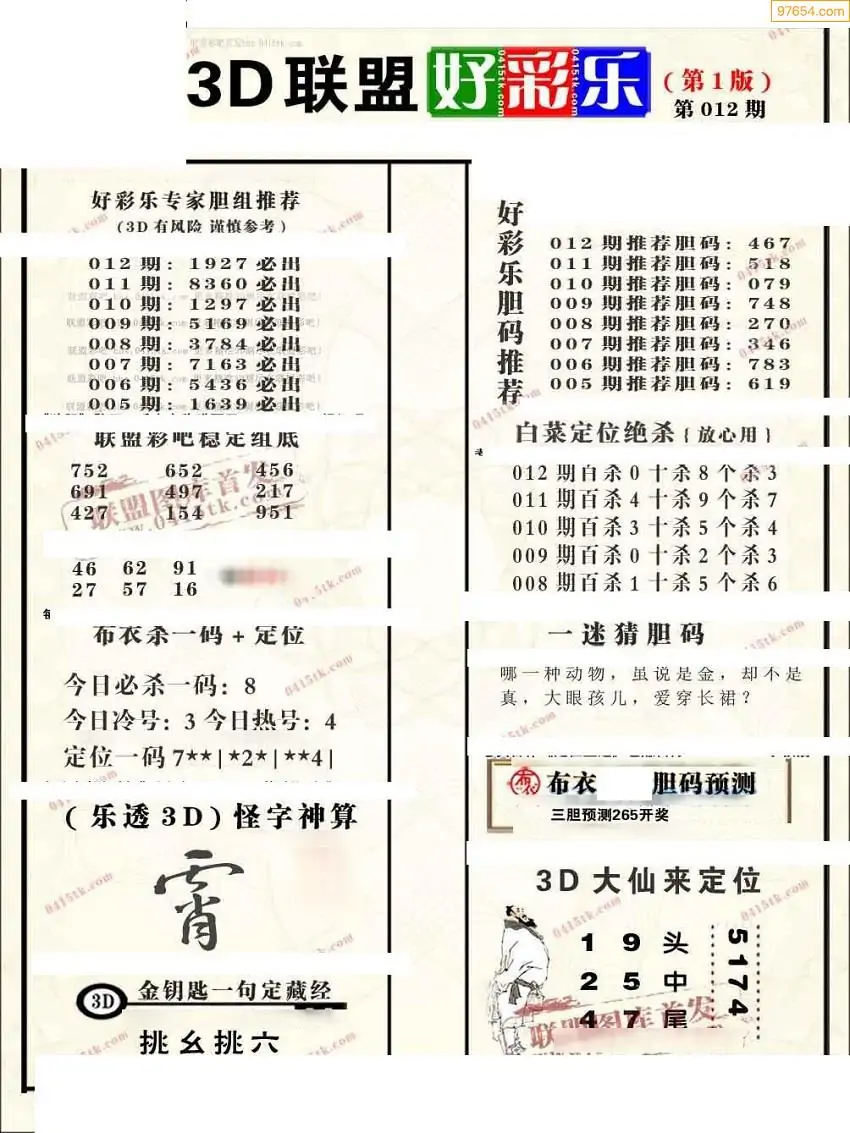 97654.com
3D联盟好彩乐(第1版)
第012期
好彩乐专家胆组推荐
(3D有风险 谨慎参考)
012期:1927必出
011期:8360必出
010期:1297必出
009期:5169必出
008期:3784必出
007期:7163必出
006期:5436必出
005期:1639必出
联盟彩吧稳定组底
752 652 456
691 497 217
427 154 951
46 62 91
27 57 16
布衣杀一码+定位
今日必杀一码:8
今日冷号:3 今日热号:4
定位一码 7**|*2*|**4|
(乐透3D)怪字神算
霄
3D 金钥匙一句定藏经
挑幺挑六
好彩乐胆码推荐
012期推荐胆码:467
011期推荐胆码:518
010期推荐胆码:079
009期推荐胆码:748
008期推荐胆码:270
007期推荐胆码:346
006期推荐胆码:783
005期推荐胆码:619
白菜定位绝杀{放心用}
012期百杀0十杀8个杀3
011期百杀4十杀9个杀7
010期百杀3十杀5个杀4
009期百杀0十杀2个杀3
008期百杀1十杀5个杀6
一迷猜胆码
哪一种动物，虽说是金，却不是
真，大眼孩儿，爱穿长裙？
布衣 胆码预测
三胆预测265开奖
3D大仙来定位
1 9 头
2 5 中
4 7 尾
5174
联盟图库首发
www.0415tk.com
联盟图库首发
0415tk.com